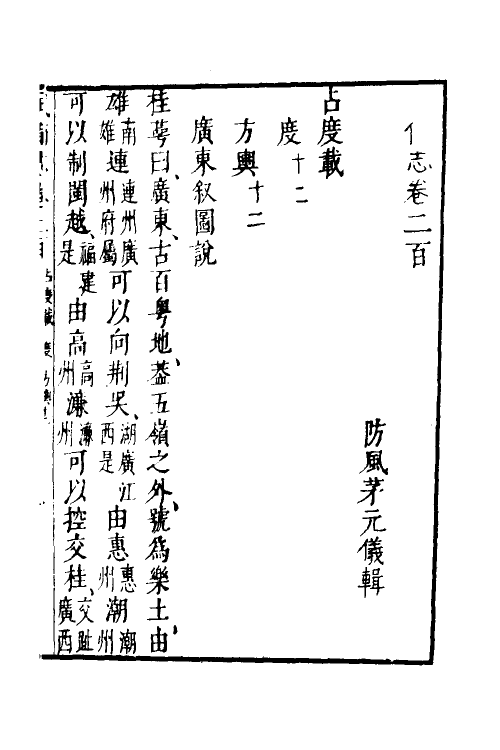 志卷二百
防風茅元儀輯
占度載
度十二
方輿十二
廣東叙圖說
桂萼曰、廣東、古百粤地、葢五嶺之外、號爲樂土、由
雄南雄連連州廣州府屬可以向荆吳、湖廣江西是由惠惠州潮潮州
可以制閩越、福建是由高高州㢘㢘州可以控交桂、交趾廣西
占度載 度